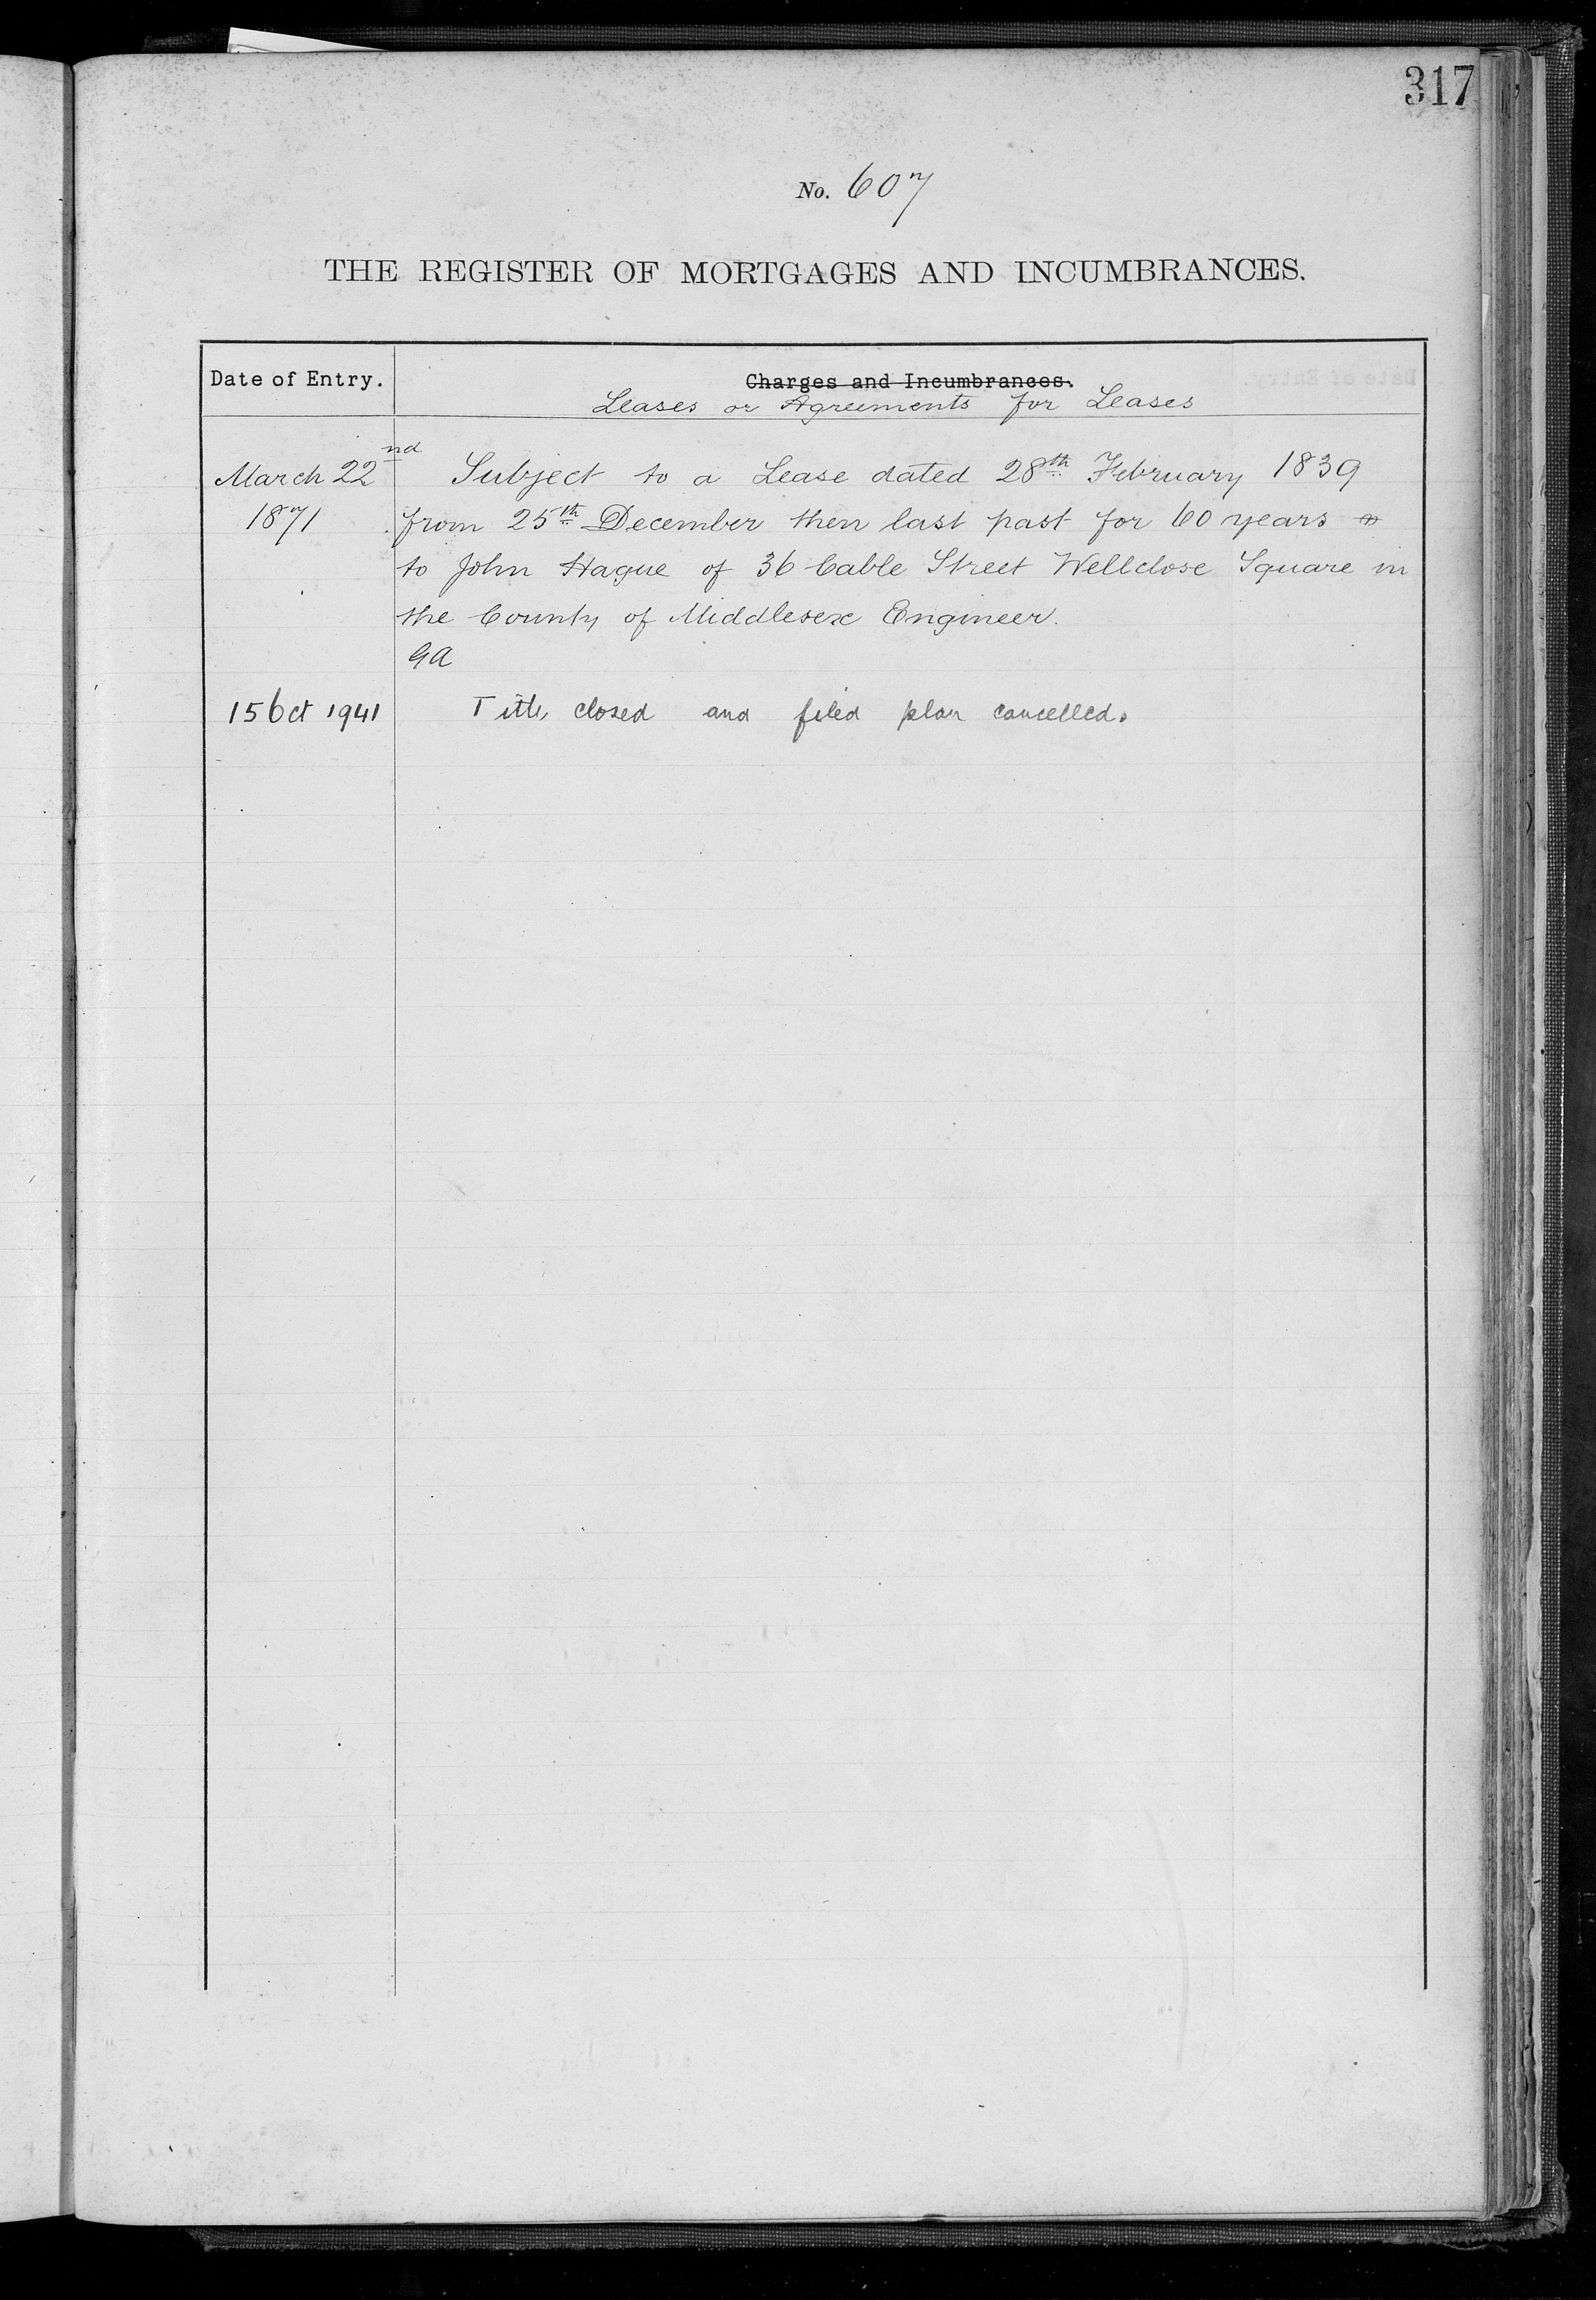 317
No. 607
THE REGISTER OF MORTGAGES AND INCUMBRANCES.
Date of Entry.
Charges and Incumbrances.
Leases or Agreements for Leases
March 22nd
Subject to a Lease dated 28th February 1839
1871
from 25th December then last past for 60 years
to John Hague of 36 Cable Street Wellclose Square in
the County of Middlesex Engineer.
GA
15 Oct 1941
Title closed and filed plan cancelled.